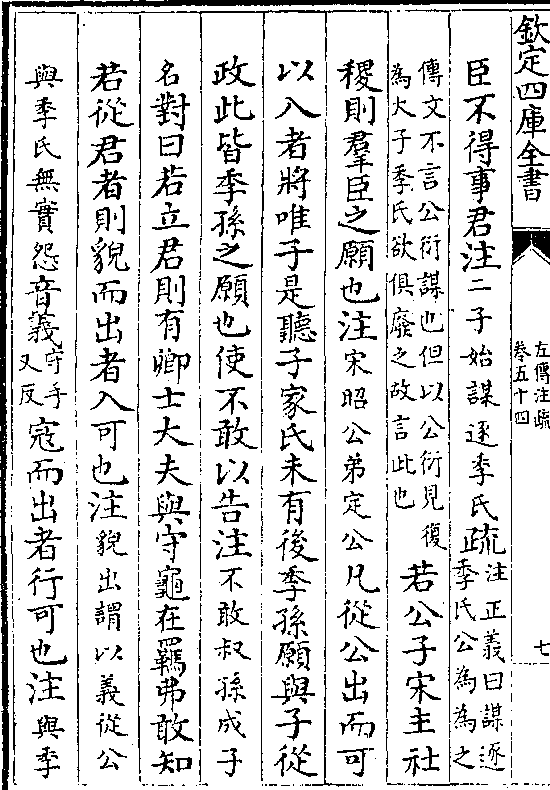 欽定四庫全書
左傳注疏
卷五十四
七
臣不得事君注二子始謀逐季氏疏注正義曰謀逐
季氏公為為之
傳文不言公衍謀也但以公衍見復
為大子季氏欲俱廢之故言此也
若公子宋主社
稷則羣臣之願也注宋昭公弟定公凡從公出而可
以入者將唯子是聽子家氏未有後季孫願與子從
政此皆季孫之願也使不敢以告注不敢叔孫成子
名對曰若立君則有卿士大夫與守龜在羈弗敢知
若從君者則貌而出者入可也注貌出謂以義從公
與季氏無實怨音義守手
又反
寇而出者行可也注與季